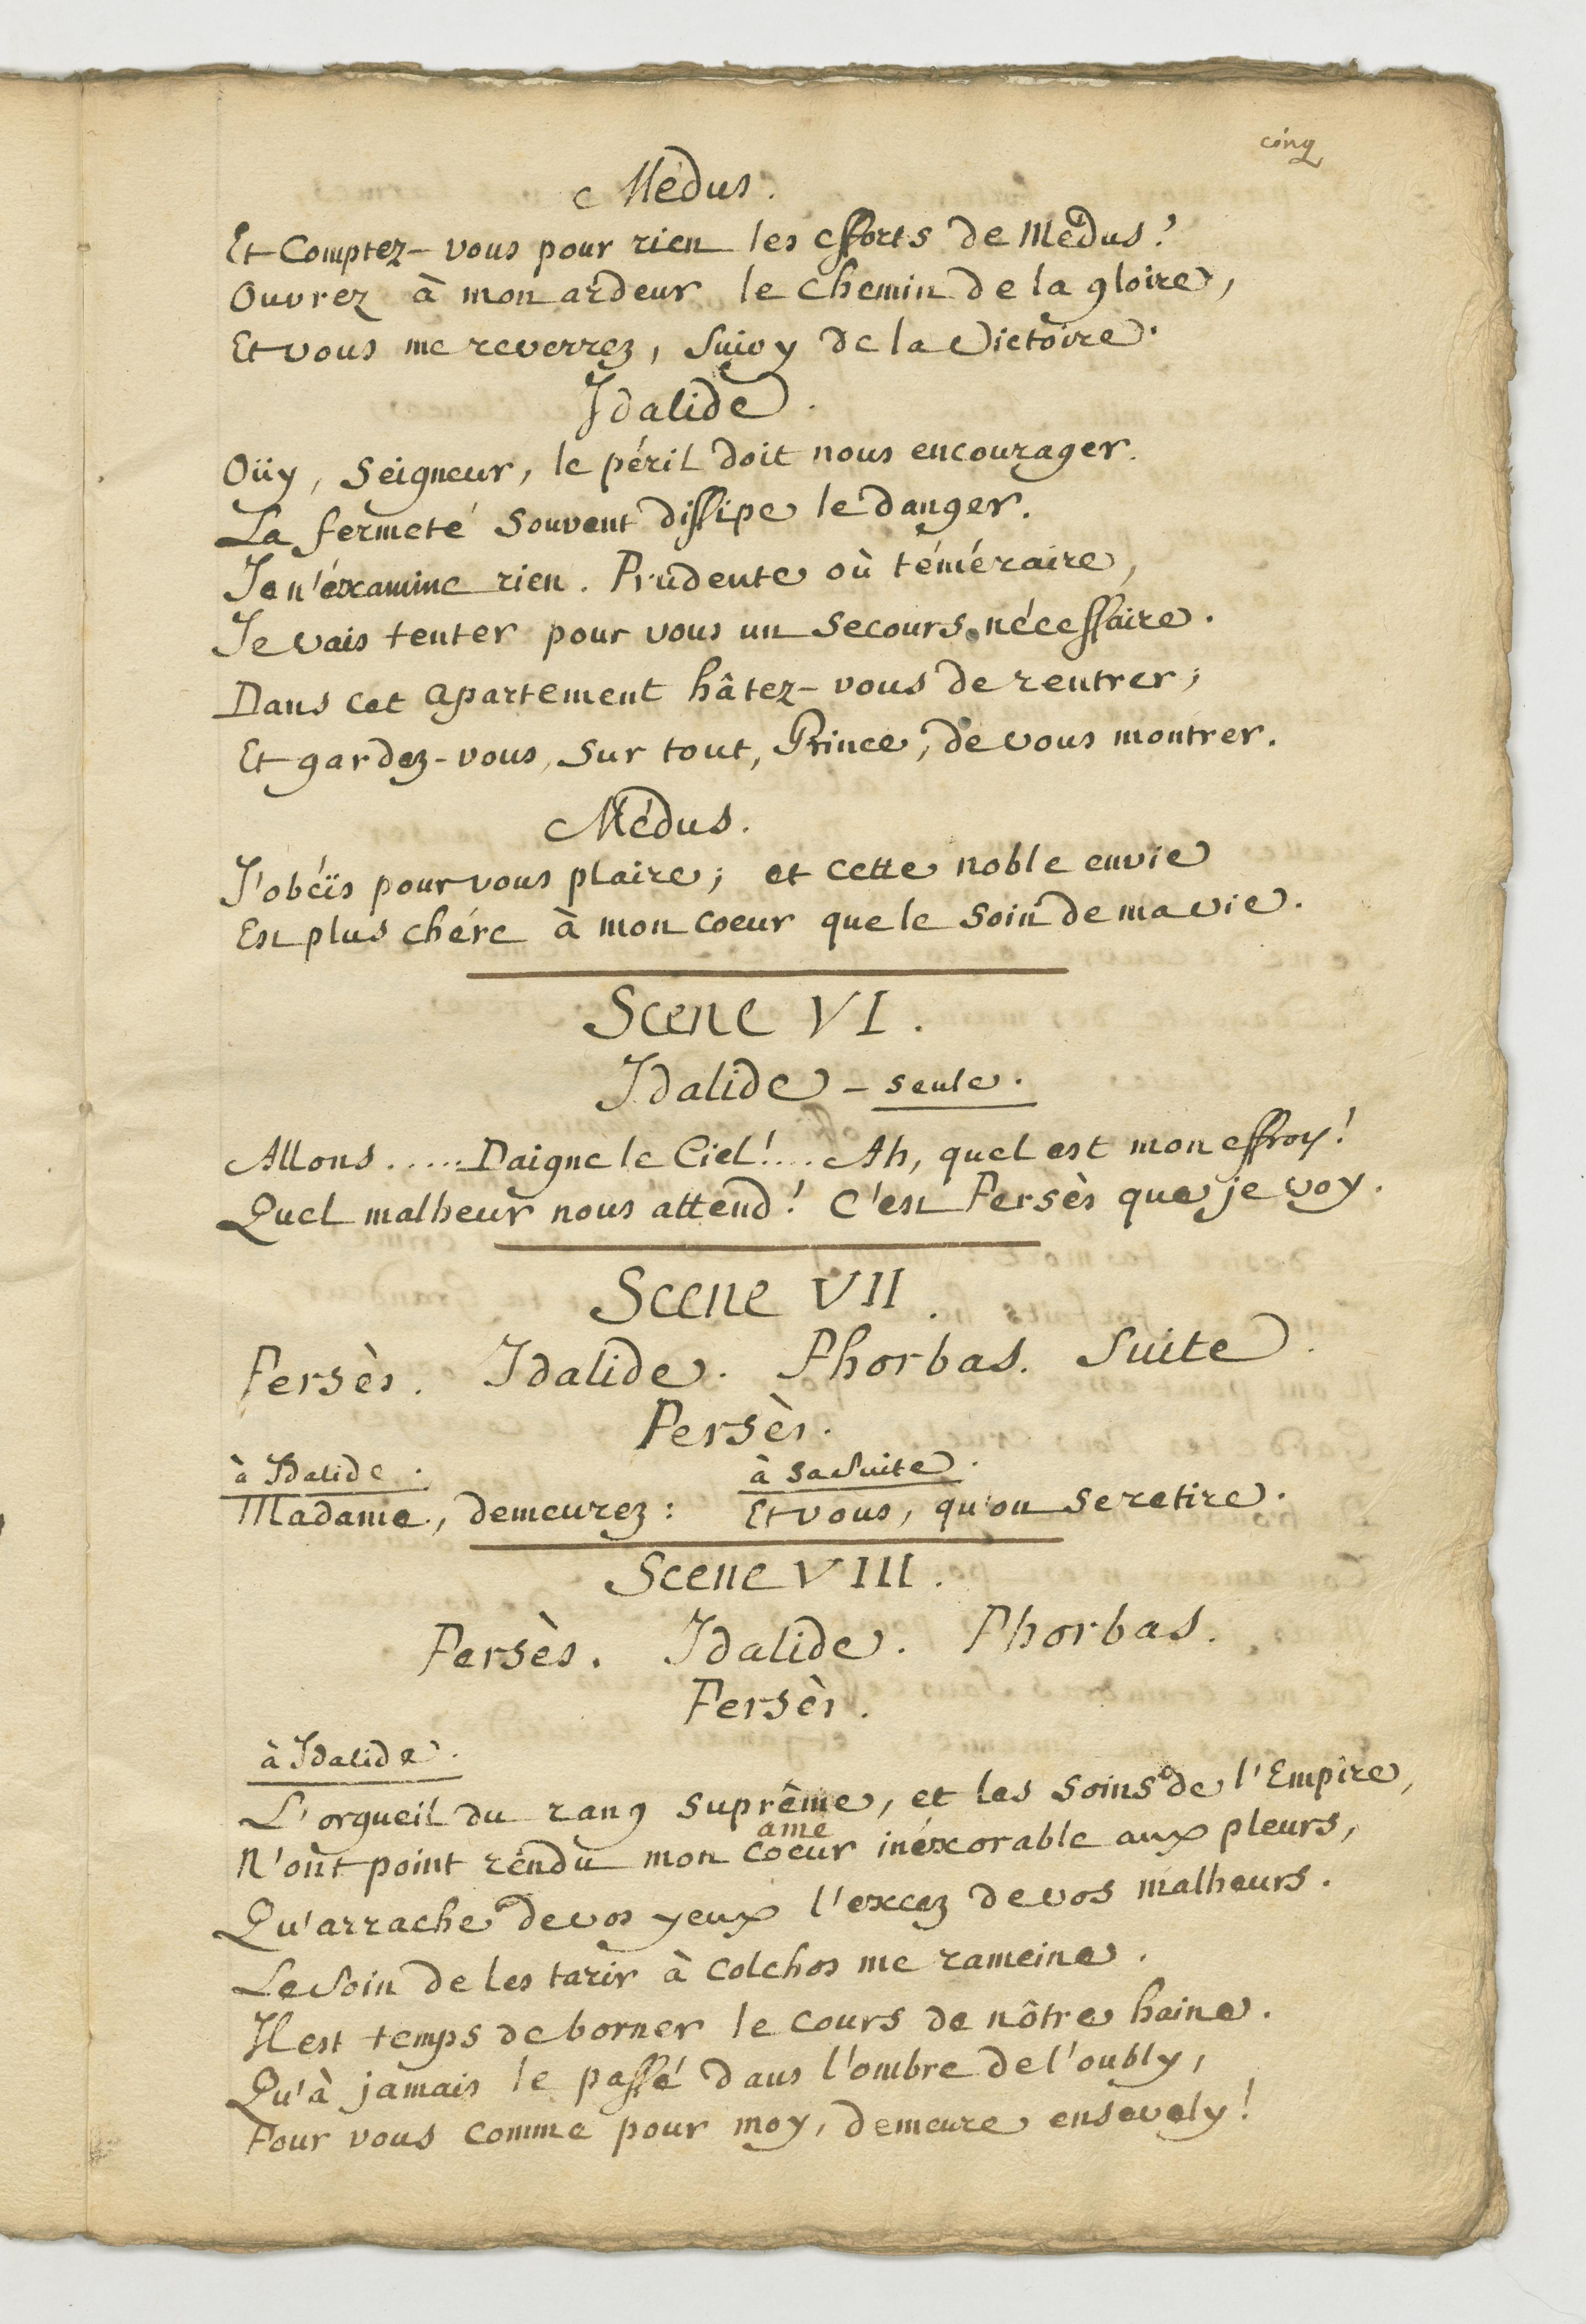 cinq
Médus.
Et Comptez-vous pour rien les efforts de Médus?
Ouvrez à mon ardeur le chemin de la gloire,
Et vous me reverrez, suivy de la Victoire.
Idalide.
Oüy, Seigneur, le péril doit nous encourager.
La fermeté souvent dissipe le danger.
Je n'éxamine rien. Prudente où téméraire,
Je vais tenter pour vous un secours nécessaire.
Dans cet apartement hâtez-vous de rentrer;
Et gardez-vous, sur tout, Prince, de vous montrer.
Médus.
J'obéïs pour vous plaire; et cette noble envie
Est plus chére à mon coeur que le soin de ma vie.
Scene VI.
Idalide - seule.
Allons.....Daigne le Ciel!.... Ah, quel est mon effroy!
Quel malheur nous attend! C'est Persès que je voy.
Scene VII.
Persès. Idalide. Phorbas. Suite.
Persès.
à Idalide. à sa suite.
Madame, demeurez: Et vous, qu'on se retire.
Scene VIII.
Persès. Idalide. Phorbas.
Persès.
à Idalide.
L'orgueil du rang suprême, et les soins de l'Empire,
ame
N'ont point rendu mon coeur inéxorable aux pleurs,
Qu'arrache de vos yeux l'excez de vos malheurs.
Le soin de les tarir à Colchos me rameine.
Il est temps de borner le cours de nôtre haine.
Qu'à jamais le passé dans l'ombre de l'oubly,
Pour vous comme pour moy, demeure ensevely!